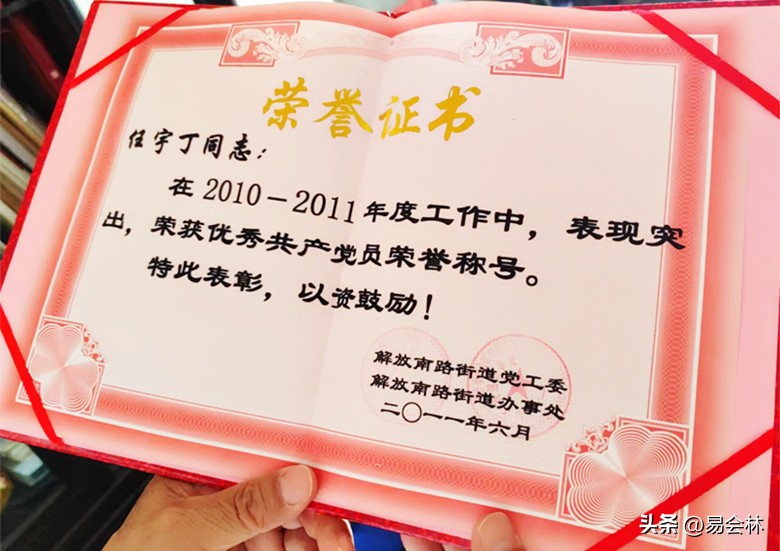 荣誉证书
任宇丁同志：
在2010－2011年度工作中，表现突
出，荣获优秀共产党员荣誉称号。
特此表彰，以资鼓励！
解放南路街道党工委
解放南路街道办事处
二〇一一年六月
头条 @易会林